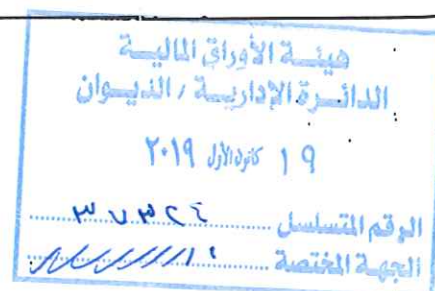 هيئة الأوراق المالية
الدائرة الإدارية / الديوان
١٩ كانون الأول ٢٠١٩
الرقم المتسلسل ٣٧٣٢٤
الجهة المختصة